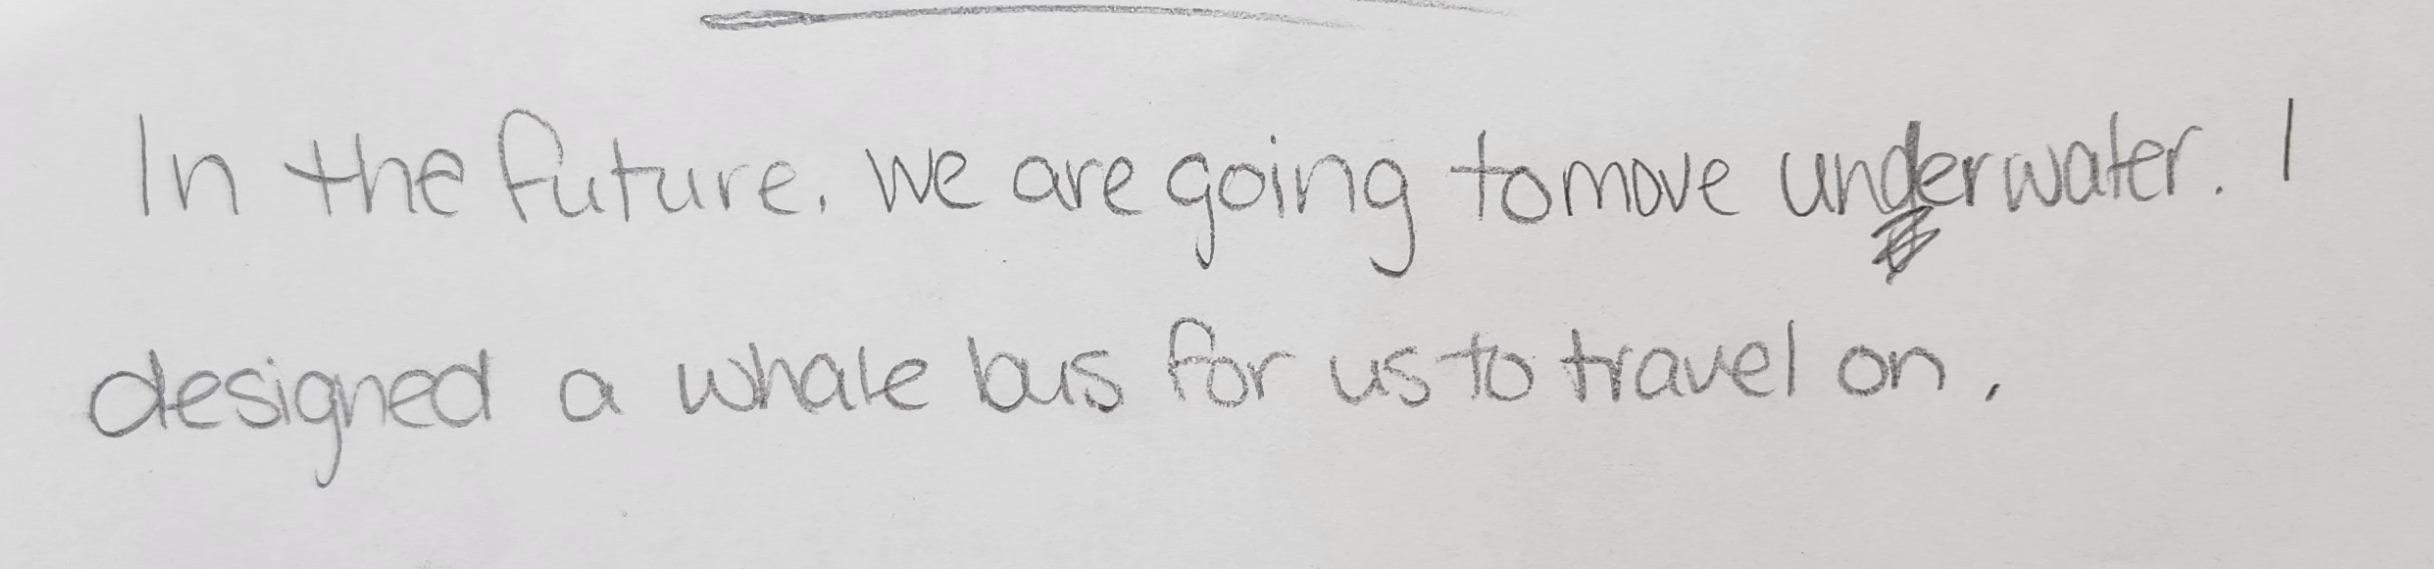 In the future. we are going to move underwater. I
designed a whale bus for us to travel on.